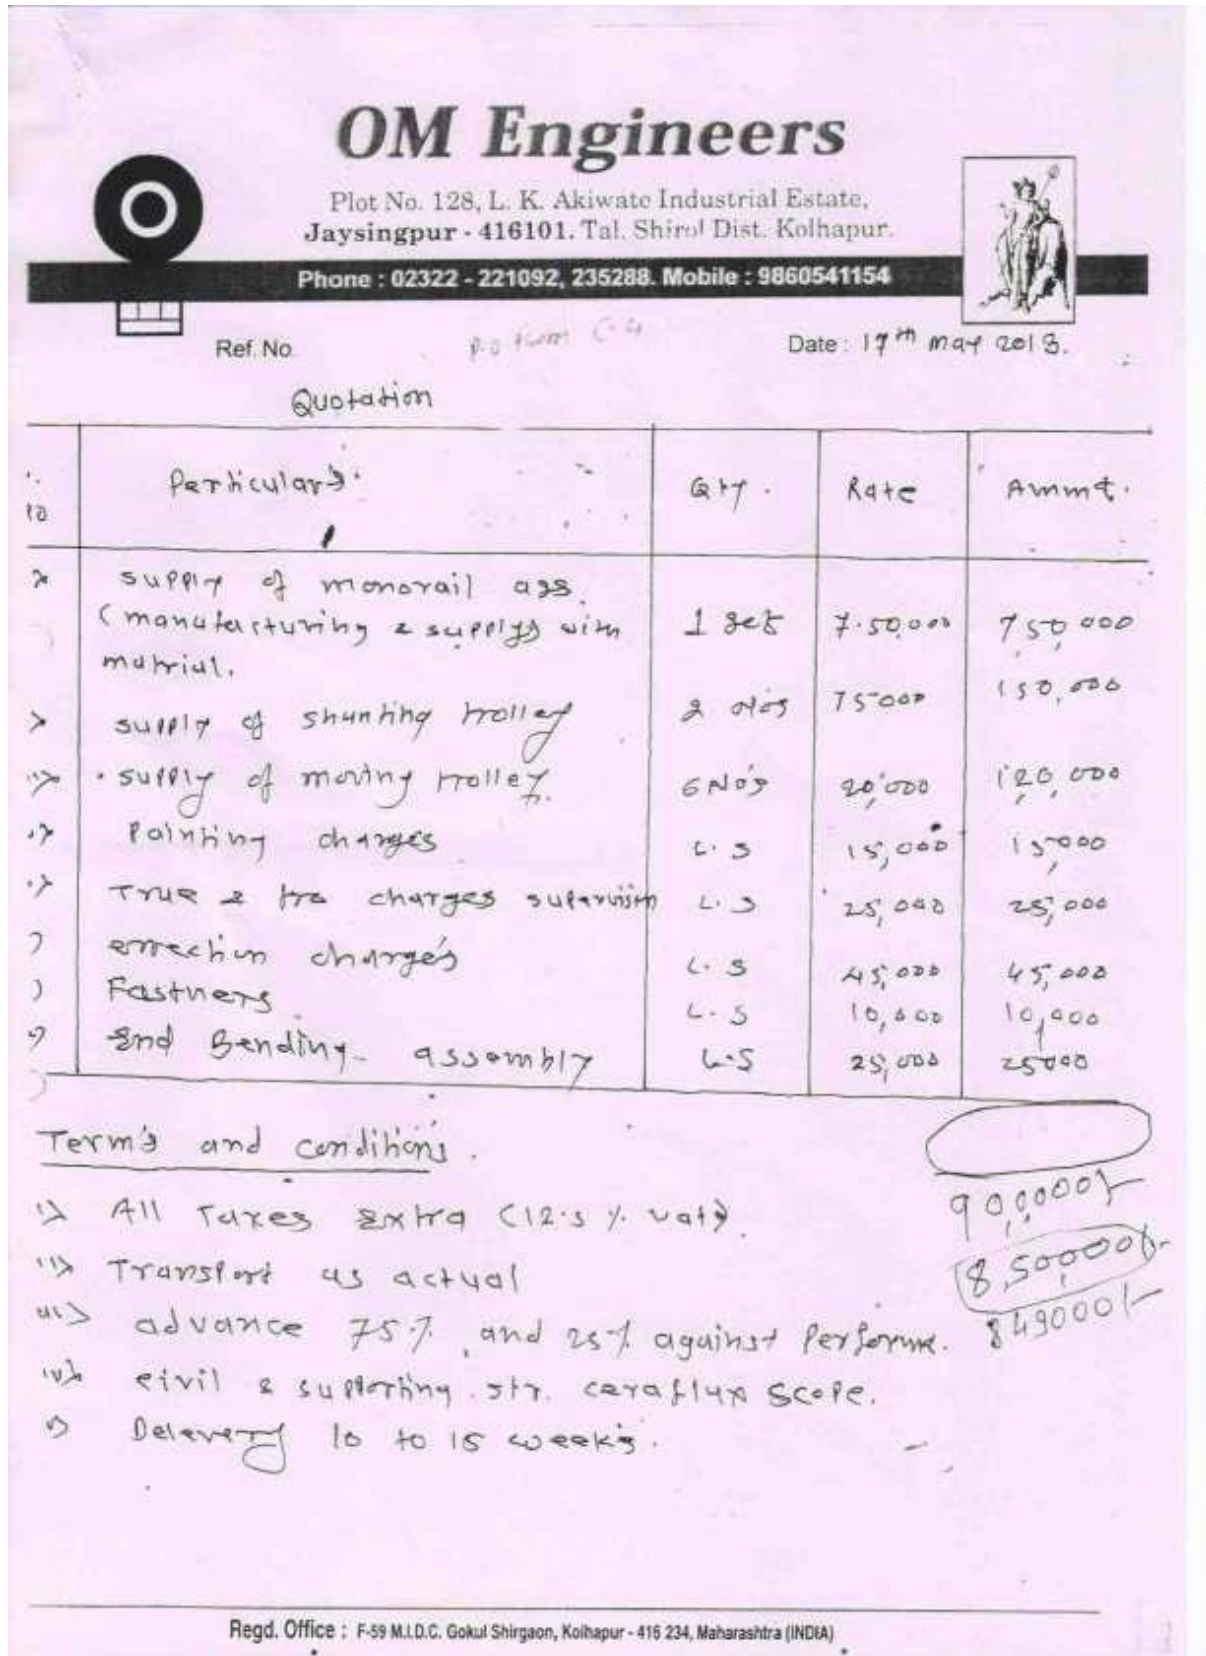 OM Engineers
Plot No. 128, L. K. Akiwate Industrial Estate,
Jaysingpur - 416101. Tal. Shirol Dist. Kolhapur.
Phone : 02322 - 221092, 235288. Mobile : 9860541154
Ref. No. Date : 17th may 2013.
Quotation
Particulars. Qty. Rate Ammt.
supply of monorail ass.
(manufacturing & supply) with 1 set 7.50,000 750,000
matrial.
supply of shunting trolley 2 No's 75000 150,000
supply of moving trolley. 6 No's 20,000 120,000
Painting charges L.S 15,000 15,000
charges supervision L.S 25,000 25,000
errection charges L.S 45,000 45,000
Fastners L.S 10,000 10,000
End Bending assembly L.S 25,000 25000
Term's and conditions.
i) All Taxes Extra (12.5 % vat).
90,0000/-
ii) Transport as actual
8,50,000/-
iii) advance 75% and 25% against Performa.
849000/-
iv) civil & supporting str. ceraflux scope.
v) Delevery 10 to 15 weeks.
Regd. Office : F-59 M.I.D.C. Gokul Shirgaon, Kolhapur - 416 234, Maharashtra (INDIA)